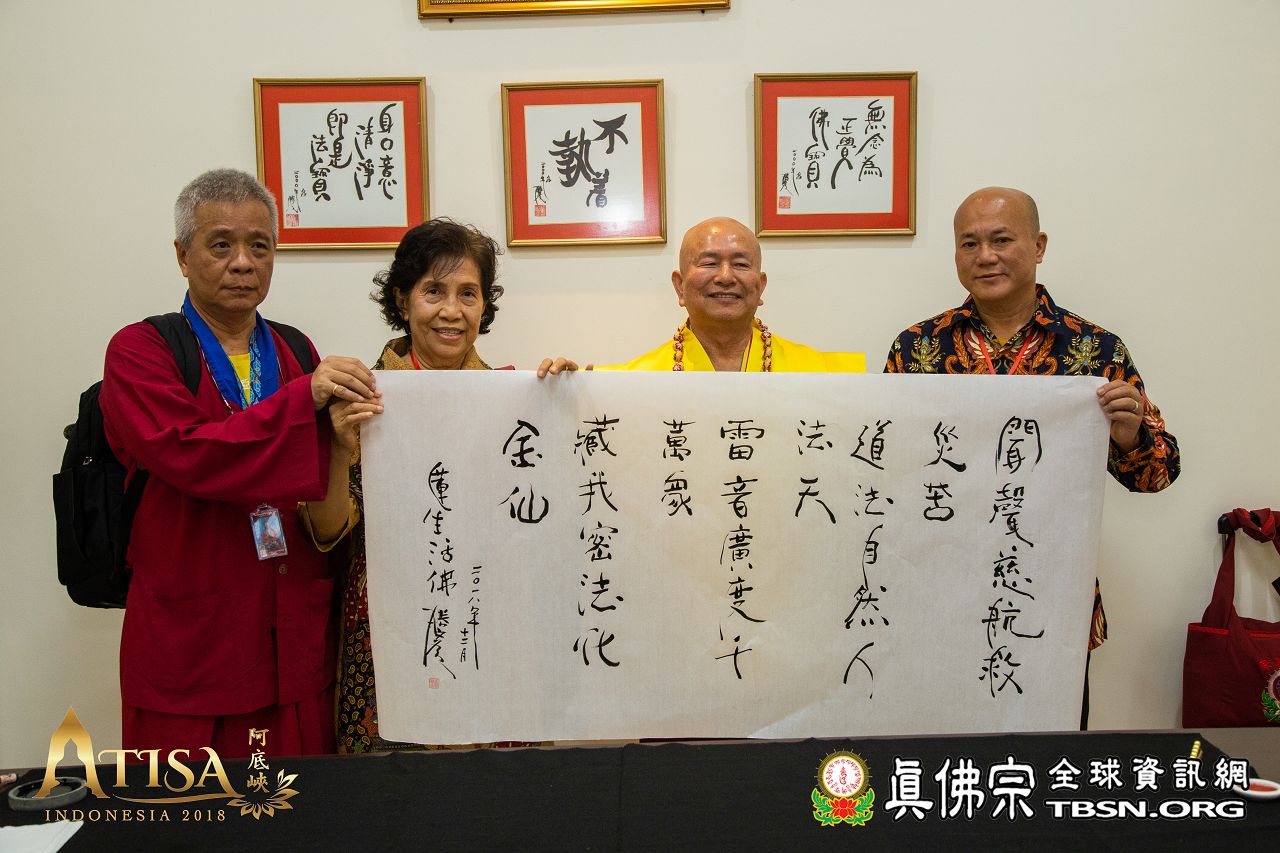 身口意
清淨
即是
法寶
不執着
無念為
正覺
佛寶
聞聲慈航救
災苦
道法自然人
法天
雷音廣度千
萬眾
藏我密法化
金仙
二〇一八年
十二月
蓮生活佛
ATISA 阿底峽
INDONESIA 2018
真佛宗 全球資訊網
TBSN.ORG